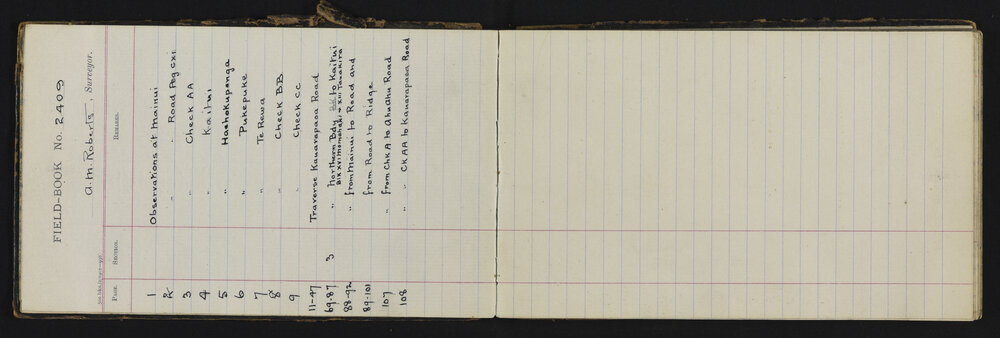 FIELD-BOOK No. 2409
A.M. Roberts, Surveyor.
PAGE. SECTION. REMARKS.
1 Observations at Mainui
2 " " Road Peg CXI
3 " Check AA
4 " Kaitui
5 " Haohakupenga
6 " Pukepuke
7 " Te Rewa
8 " Check BB
9 " Check CC
11-47 Traverse Kauarapaoa Road
69-87 3 " Northern Bdy to Kaitui
Blk XVI Momahaki ~ XIII Tauakira
88-92 " from Mainui to Road and
89-101 from Road to Ridge
107 " from Chk A to Ahu Ahu Road
108 " Ck AA to Kauarapaoa Road